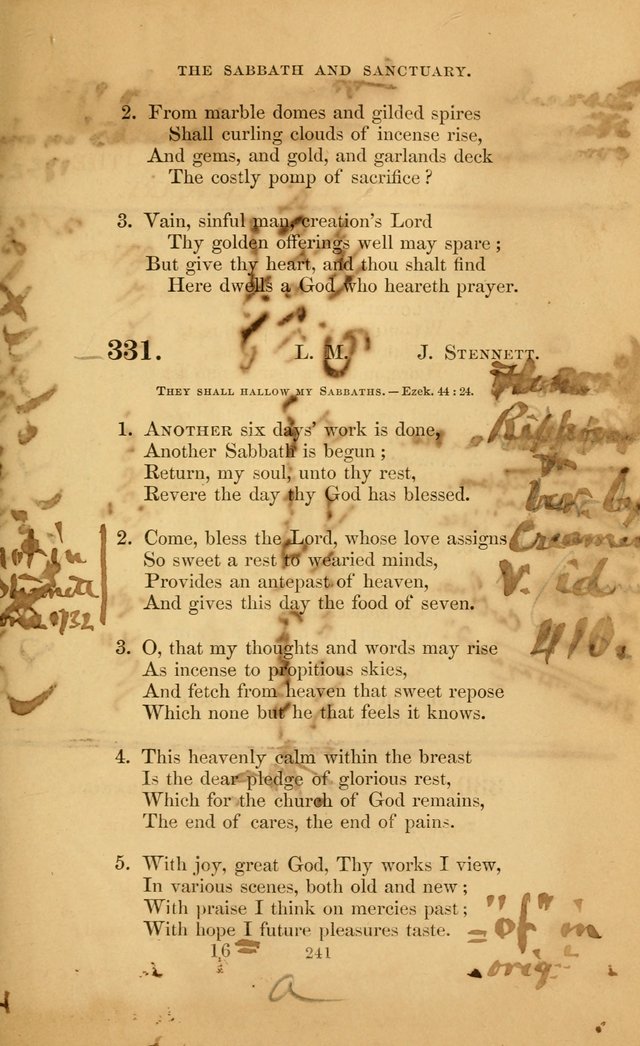 THE SABBATH AND SANCTUARY.
2. From marble domes and gilded spires
Shall curling clouds of incense rise,
And gems, and gold, and garlands deck
The costly pomp of sacrifice?
3. Vain, sinful man, creation's Lord
Thy golden offerings well may spare;
But give thy heart, and thou shalt find
Here dwells a God who heareth prayer.
331. L. M. J. STENNETT.
THEY SHALL HALLOW MY SABBATHS.—Ezek. 44:24.
1. ANOTHER six days' work is done,
Another Sabbath is begun;
Return, my soul, unto thy rest,
Revere the day thy God has blessed.
2. Come, bless the Lord, whose love assigns
So sweet a rest to wearied minds,
Provides an antepast of heaven,
And gives this day the food of seven.
3. O, that my thoughts and words may rise
As incense to propitious skies,
And fetch from heaven that sweet repose
Which none but he that feels it knows.
4. This heavenly calm within the breast
Is the dear pledge of glorious rest,
Which for the church of God remains,
The end of cares, the end of pains.
5. With joy, great God, Thy works I view,
In various scenes, both old and new;
With praise I think on mercies past;
With hope I future pleasures taste.
16 241
not in
Stennett
1732
Rippon
V. id
410.
"of" in
orig.
a